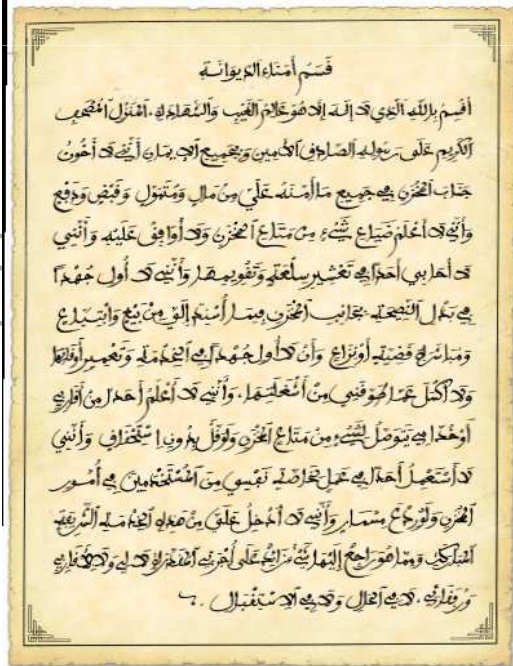 قَسَم أمَنَاء الديوَانَة
أقسِمُ بِاللَّهِ الَّذِي لا إلَهَ إلاَّ هُوَ عَالِم الغَيْبِ وَالشَّهَادَةِ. المُنزل المُصْحَفِ
الكَرِيمِ عَلَى رَسُولِهِ الصَّادِقِ الأمِين وَبِجَمِيع الإيمَان أنَّنِي لا أخُونُ
جَنَابَ المَخْزَنِ فِي جَمِيعِ مَا أمَّنَهُ عَلَيَّ مِنْ مَالٍ وَمُتَمَوَّلٍ وَقَبْضٍ وَدَفْعٍ
وَأنِّي لا أعْلَم ضَيَاعَ شَيْءٍ مِنْ مَتَاعِ المَخْزَنِ وَلا أوَافِق عَلَيْهِ وَأنَّنِي
لا أحَابِي أحَدًا فِي تَعْشِيرِ سِلْعَتِهِ وَتَقْوِيمِهَا وَأنَّنِي لا أُولِ جُهْدًا
فِي بَذْلِ النَّصِيحَةِ بِجَانِبِ المَخْزَنِ فِيمَا أسْنِدَ إلَيَّ مِنْ بَيْعٍ وَابْتِيَاعٍ
وَمُبَاشَرَةِ قَضِيَّةٍ أوْ نِزَاعٍ وَأنْ لا أولِ جُهْدًا فِي الخِدْمَةِ وَتَعْمِيرِ أوْقَاتِهَا
وَلا أكْسَل عَمَّا هُوَ فِنِّي مِنْ أشْغَالِهَا. وَأنَّنِي لا أعْلَمُ أحَدًا مِن أقَارِبِي
أوْ خُدَّامِي يَتَوَصَّل لِشَيْءٍ مِنْ مَتَاعِ المَخْزَنِ وَلَوْ قَلَّ بِدُونِ اسْتِحْقَاقٍ وَأنَّنِي
لا أسْتَعْمِلُ أحَدًا فِي عَمَلِ خَاصَّةِ نَفْسِي مِنَ المُسْتَخْدَمِينَ فِي أمُورِ
المَخْزَنِ وَلَوْ رَدْعَ مِسْمَارٍ وَأنَّنِي لا أدْخِلُ عَلَيَّ مِنْ هَذِهِ الخِدْمَةِ الشَّرِيفَةِ
المُبَارَكَةِ وَمِمَّا هُوَ رَاجِعٌ إلَيْهَا شَيْئًا زَائِدًا عَلَى أجْرَتِي المُقَدَّرَةِ لا لِي وَلا لأقَارِبِي
وَرُفَقَائِي. لا فِي الحَالِ وَلا فِي الاسْتِقْبَالِ.